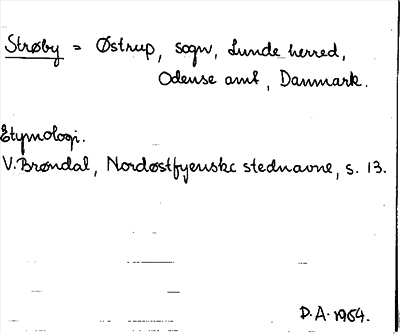 Strøby = Østrup, sogn, Lunde herred,
Odense amt, Danmark.
Etymologi.
V. Brøndal, Nordøstfyenske stednavne, s. 13.
D.A. 1964.